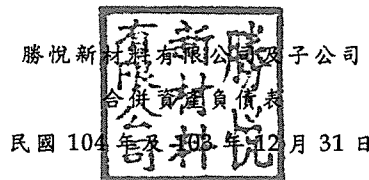 勝悅新材料有限公司及子公司
合併資產負債表
民國 104 年及 103 年 12 月 31 日
勝悅
新材料
有限公司